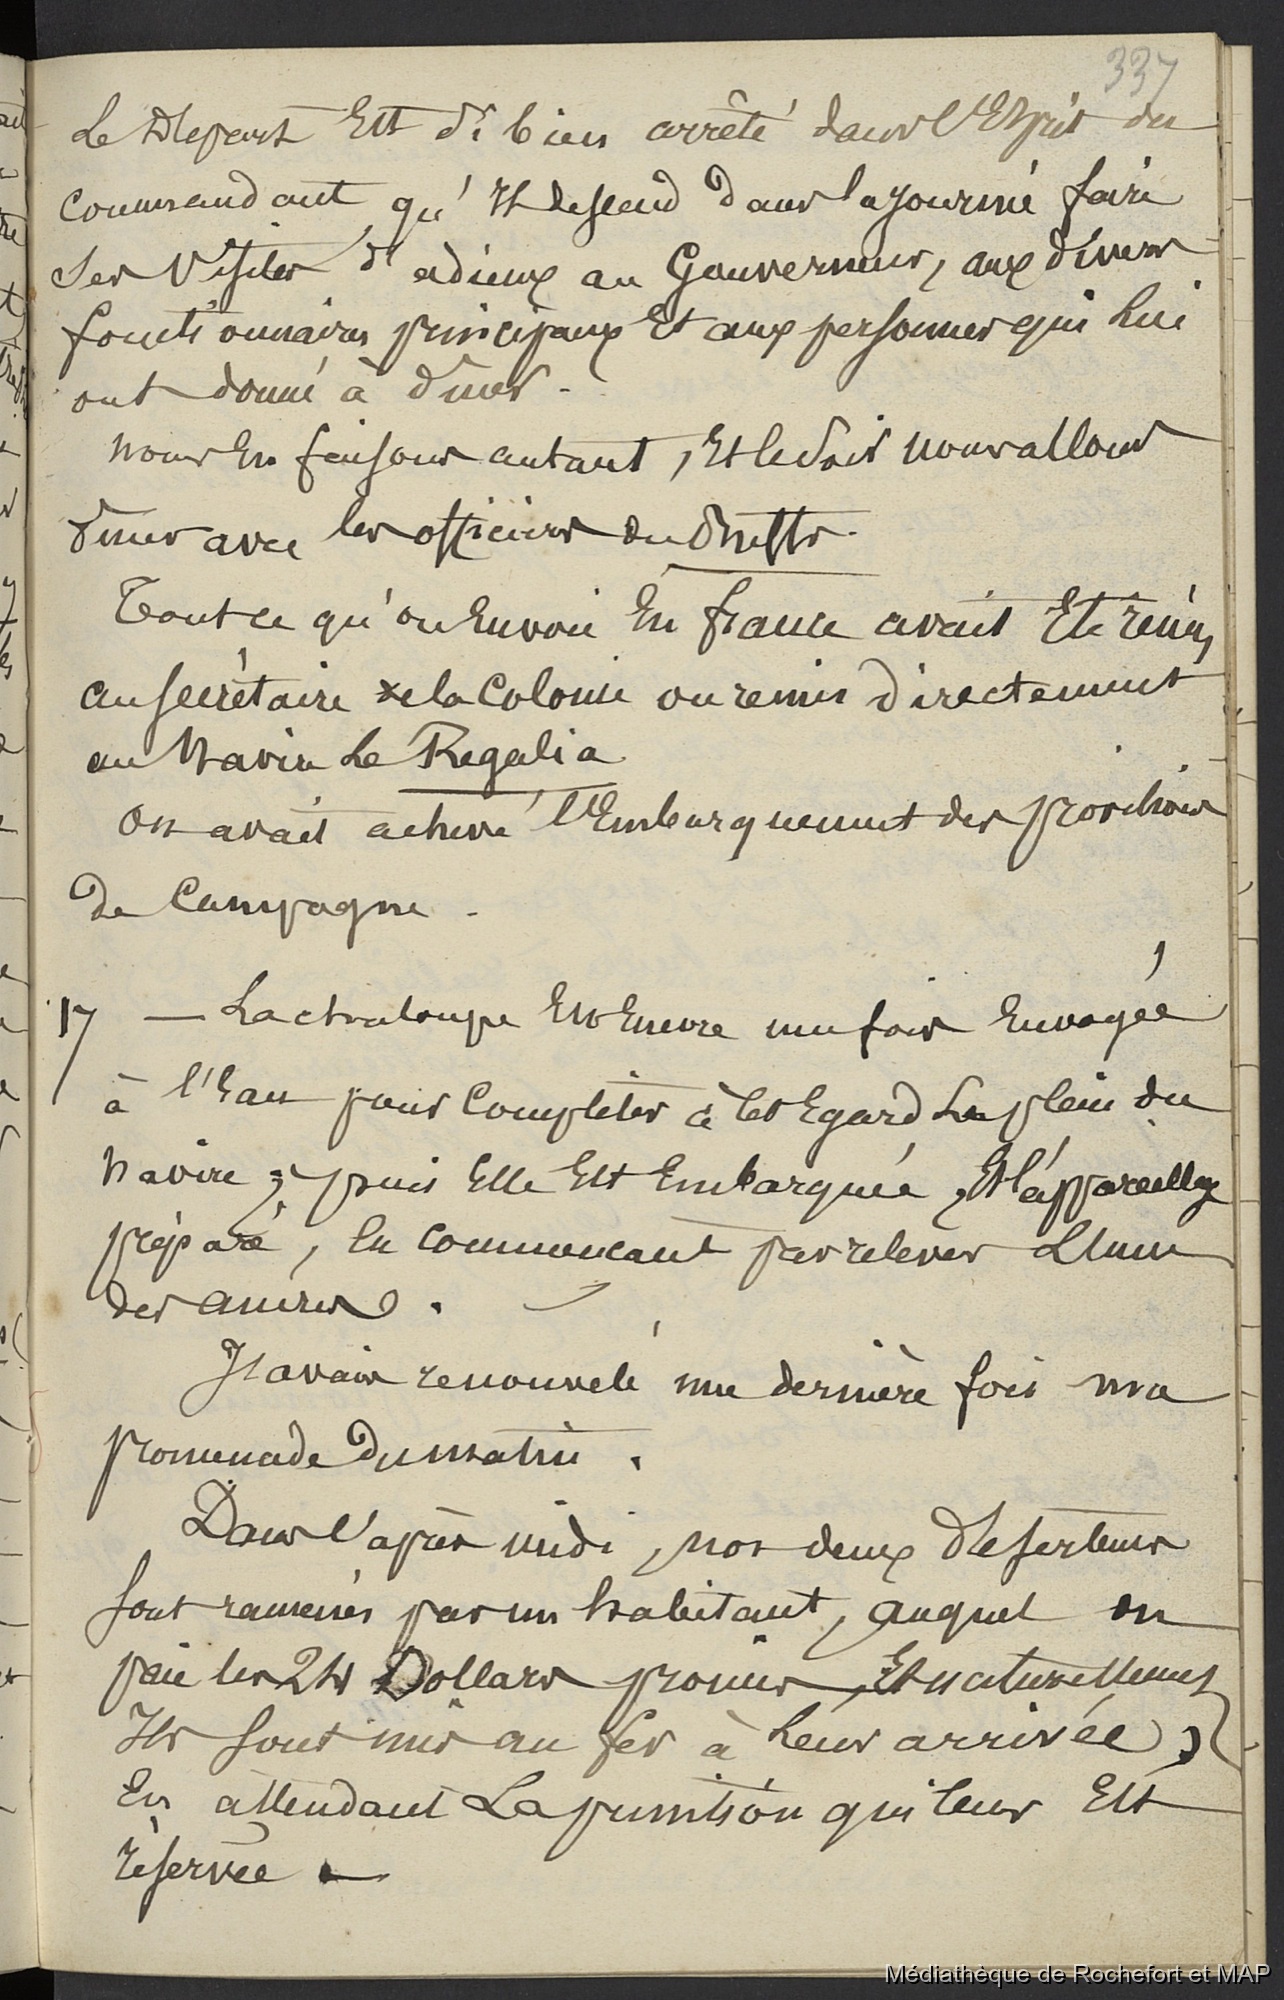 337
Le Départ Est si bien arrêté dans l'Esprit du
commandant, qu'il descend dans la journée faire
ses visites d'adieux au Gouverneur, aux divers
fonctionnaires principaux Et aux personnes qui lui
ont donné à dîner.
nous En faisons autant, Et le soir nous allons
dîner avec les officiers du
Tout ce qu'on Envoie En france avait Eté réuni
au secrétaire de la Colonie ou remis directement
au Navire Le Regalia
On avait achevé l'Embarquement des provisions
de Campagne.
17 — La chaloupe Est Encore une fois Envoyée
à l'Eau pour Compléter à cet Egard Le plein du
Navire ; puis Elle Est Embarquée, Et l'appareillage
préparé, En commencant par relever L'une
des ancres.
J'avais renouvelé une dernière fois ma
promenade du matin.
Dans l'après midi, nos deux Déserteurs
sont ramenés par un habitant, auquel on
paie les 24 Dollars promis, Et naturellement
Ils sont mis au fer à Leur arrivée,
En attendant La punition qui leur Est
réservée —
Médiathèque de Rochefort et MAP